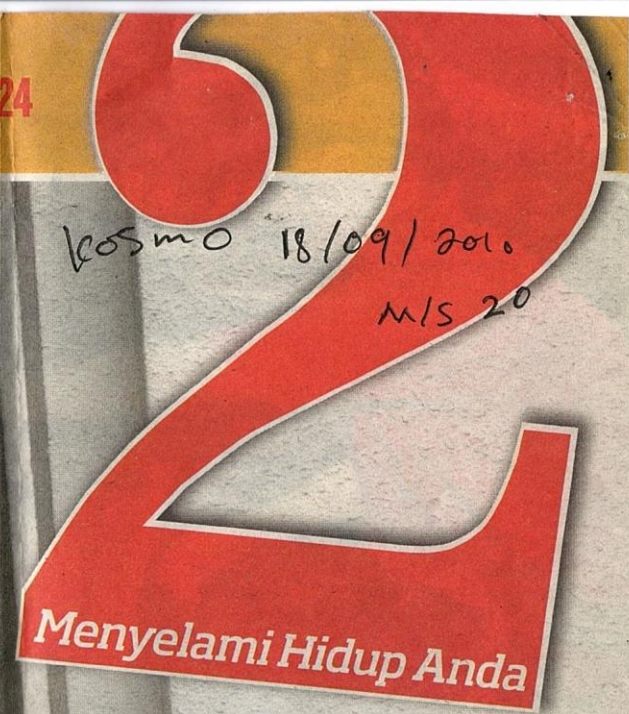 24
2
kosmo 18/09/2010
M/S 20
Menyelami Hidup Anda